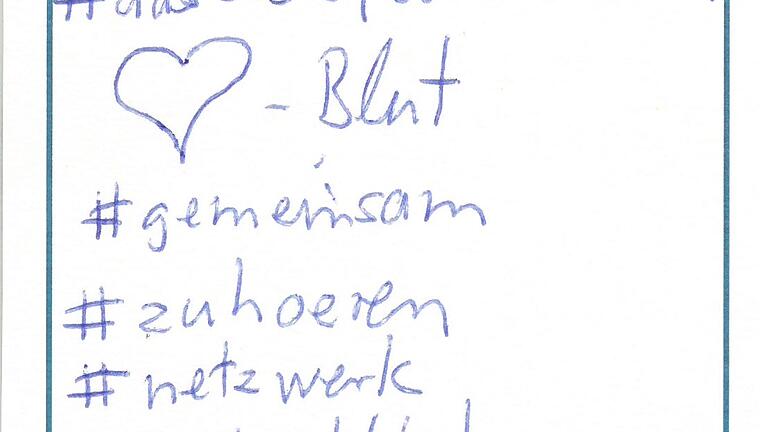 - Blut
#gemeinsam
#zuhoeren
#netzwerk